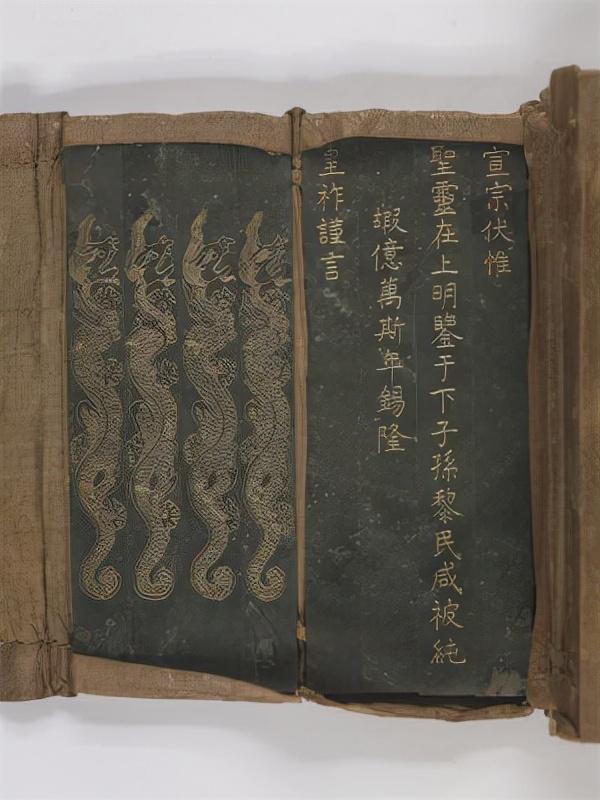 宣宗伏惟
聖靈在上明鑒于下子孫黎民咸被純
嘏億萬斯年錫隆
皇祚謹言